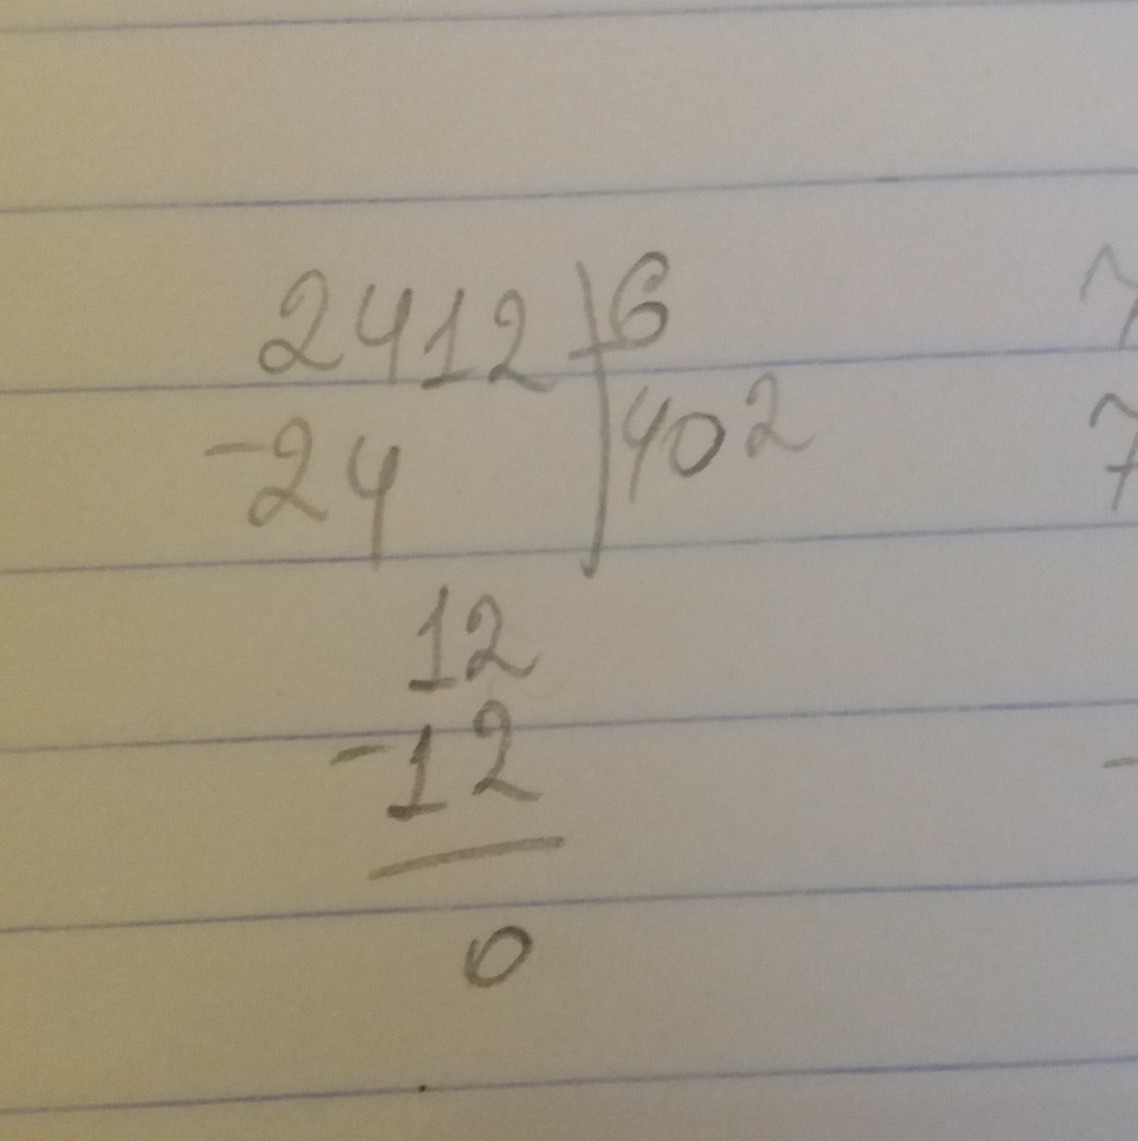 2412 6 7
-24 402 7
12
-12 -
0